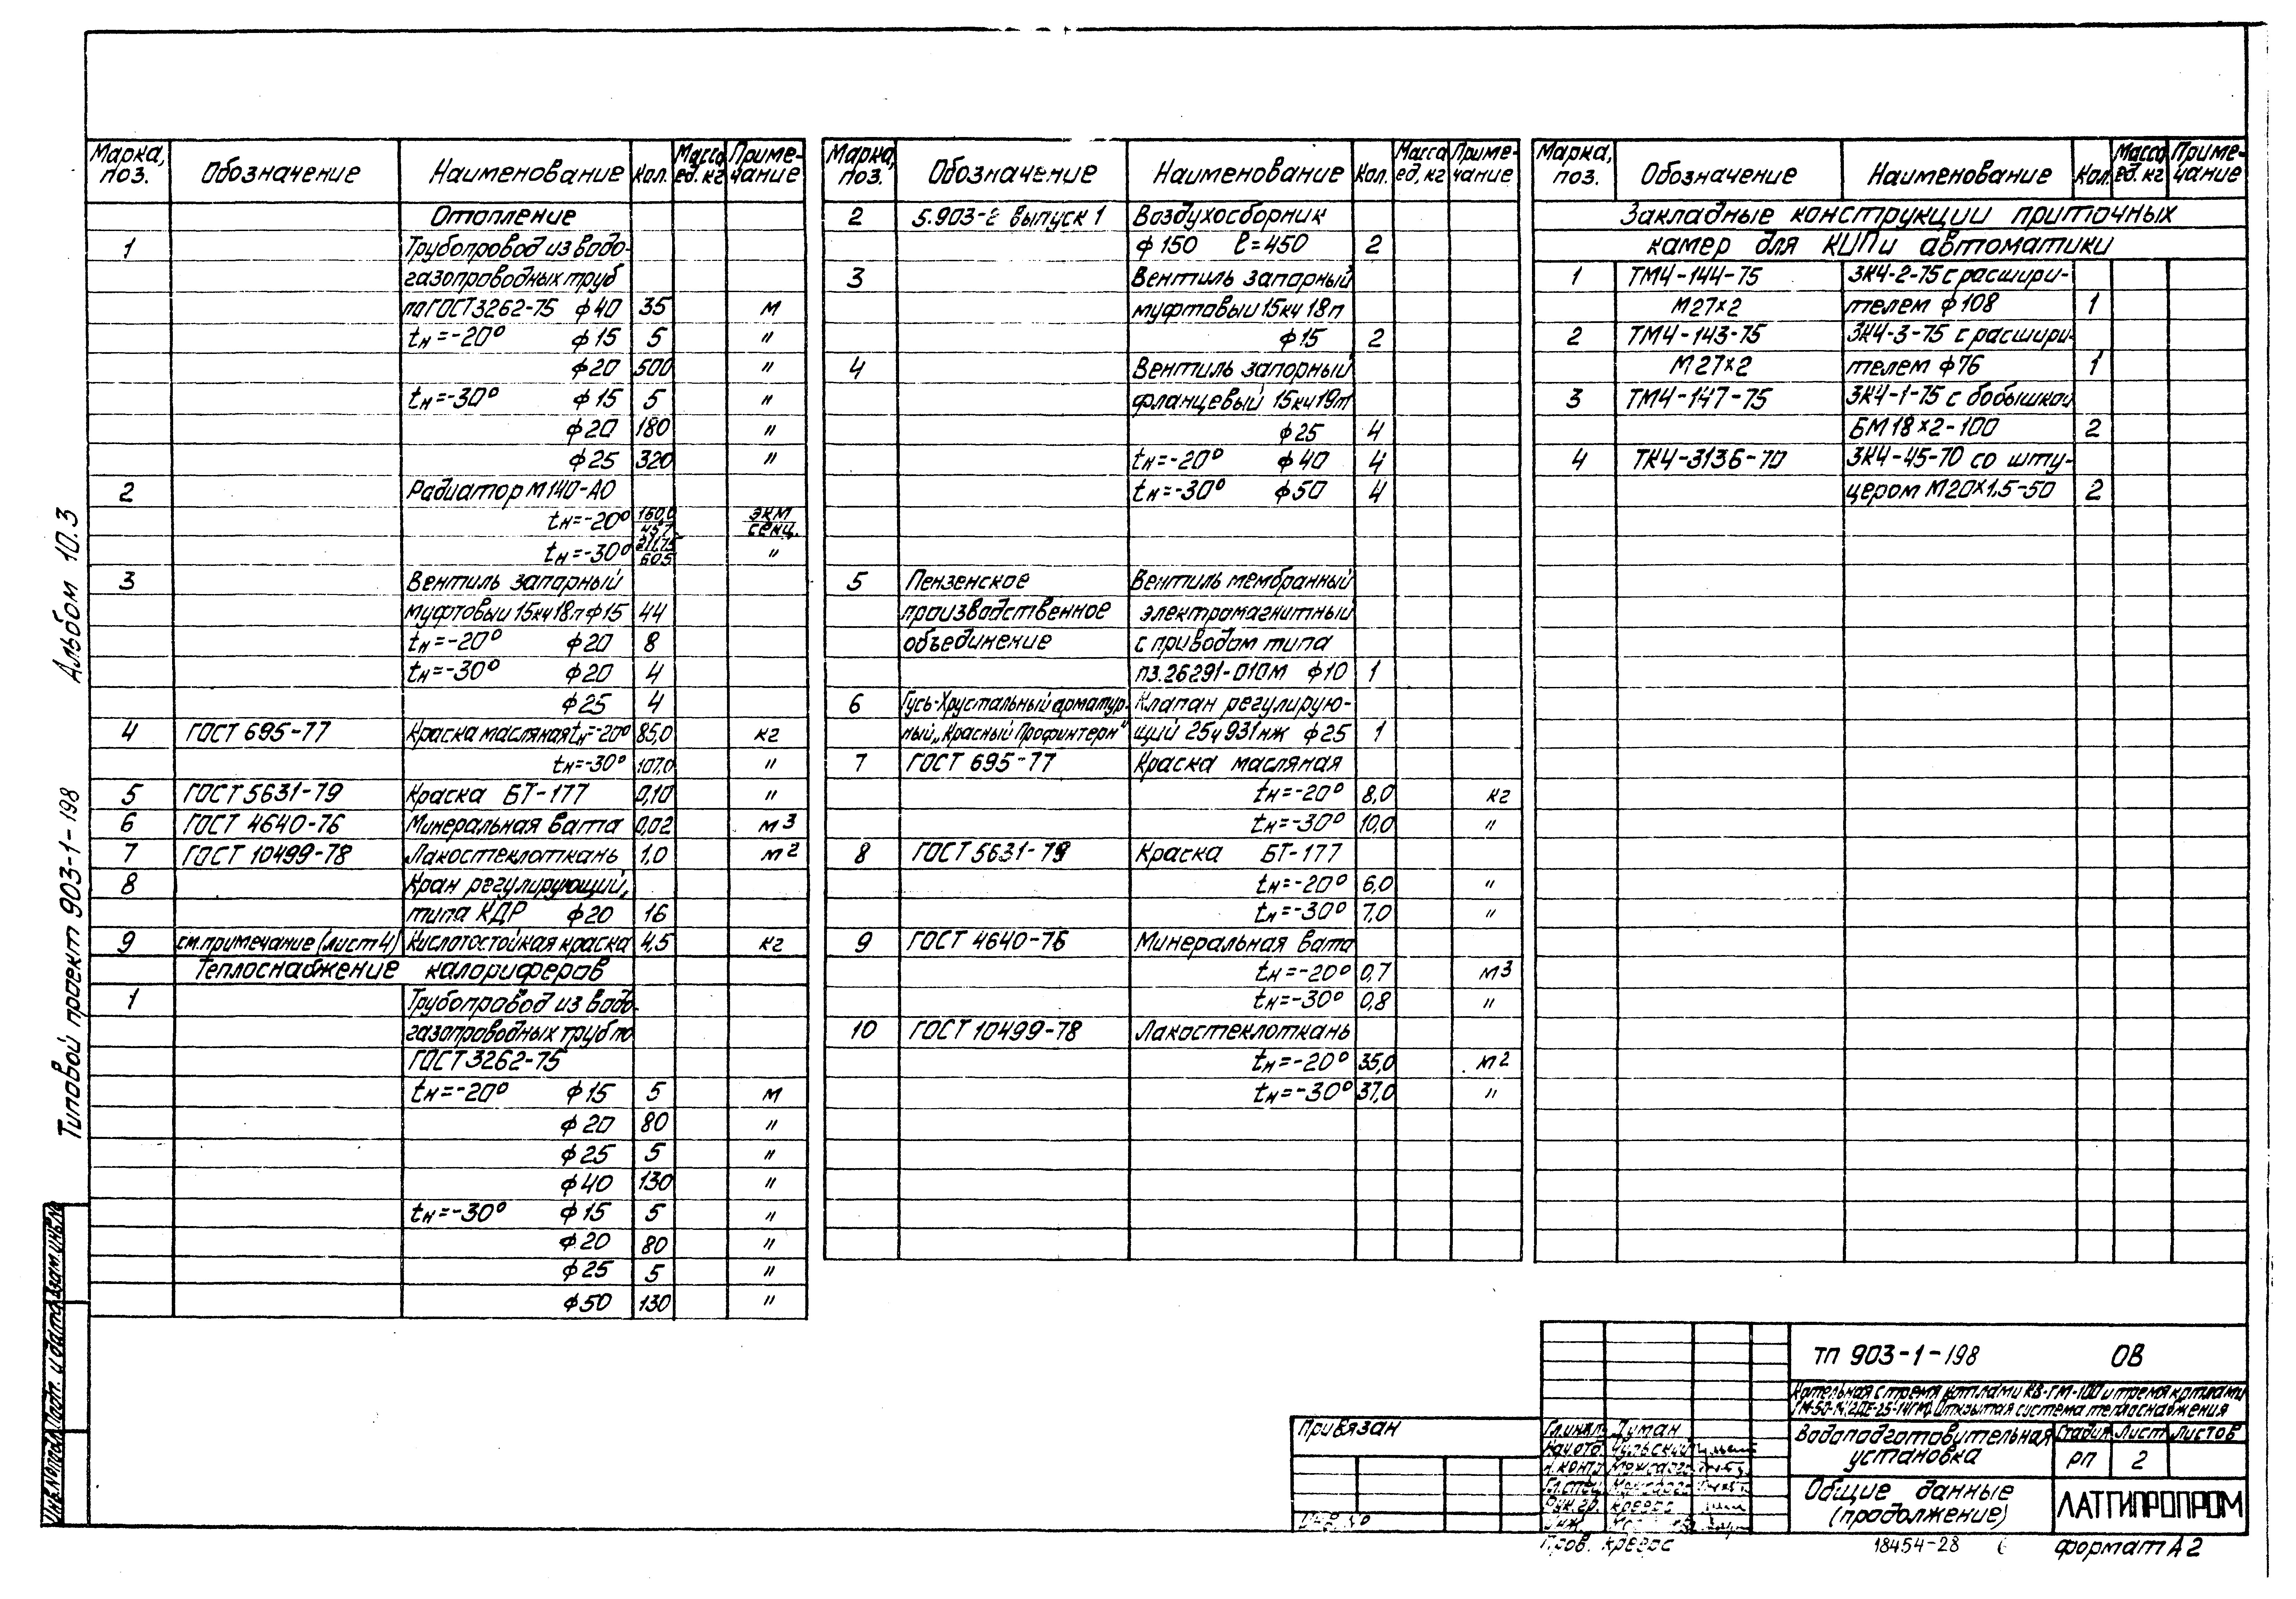 Марка, поз. Обозначение Наименование Кол. Масса ед. кг Примечание
Отопление
1 Трубопровод из водо-
газопроводных труб
по ГОСТ 3262-75 ф40 35 м
tн=-20° ф15 5 "
ф20 500 "
tн=-30° ф15 5 "
ф20 180 "
ф25 320 "
2 Радиатор М140-АО
tн=-20° 160,0 / 45,7 экм / секц.
tн=-30° 211,75 / 60,5 "
3 Вентиль запарный
муфтовый 15кч18п ф15 44
tн=-20° ф20 8
tн=-30° ф20 4
ф25 4
4 ГОСТ 695-77 Краска масляная tн=-20° 85,0 кг
tн=-30° 107,0 "
5 ГОСТ 5631-79 Краска БТ-177 0,10 "
6 ГОСТ 4640-76 Минеральная вата 0,02 м3
7 ГОСТ 10499-78 Лакостеклоткань 1,0 м2
8 Кран регулирующий,
типа КДР ф20 16
9 см. примечание (лист 4) Кислотостойкая краска 4,5 кг
Теплоснабжение калориферов
1 Трубопровод из водо-
газопроводных труб по
ГОСТ 3262-75
tн=-20° ф15 5 м
ф20 80 "
ф25 5 "
ф40 130 "
tн=-30° ф15 5 "
ф20 80 "
ф25 5 "
ф50 130 "
Марка, поз. Обозначение Наименование Кол. Масса ед, кг Примечание
2 5.903-2 выпуск 1 Воздухосборник
ф150 l=450 2
3 Вентиль запарный
муфтовый 15кч18п
ф15 2
4 Вентиль запорный
фланцевый 15кч19п
ф25 4
tн=-20° ф40 4
tн=-30° ф50 4
5 Пензенское Вентиль мембранный
производственное электромагнитный
объединение с приводом типа
пз.26291-010М ф10 1
6 Гусь-Хрустальный арматур- Клапан регулирую-
ный „Красный Профинтерн" щий 25ч931нж ф25 1
7 ГОСТ 695-77 Краска масляная
tн=-20° 8,0 кг
tн=-30° 10,0 "
8 ГОСТ 5631-79 Краска БТ-177
tн=-20° 6,0 "
tн=-30° 7,0 "
9 ГОСТ 4640-76 Минеральная вата
tн=-20° 0,7 м3
tн=-30° 0,8 "
10 ГОСТ 10499-78 Лакостеклоткань
tн=-20° 35,0 м2
tн=-30° 37,0 "
Марка, поз. Обозначение Наименование Кол. Масса ед. кг Примечание
Закладные конструкции приточных
камер для КИПи автоматики
1 ТМ4-144-75 ЗК4-2-75 с расшири-
М27×2 телем ф108 1
2 ТМ4-143-75 ЗК4-3-75 с расшири-
М27×2 телем ф76 1
3 ТМ4-147-75 ЗК4-1-75 с бобышкой
БМ18×2-100 2
4 ТК4-3136-70 ЗК4-45-70 со шту-
цером М20×1,5-50 2
Альбом 10.3
Типовой проект 903-1-198
Инв.№подл. Подп. и дата Взам.инв.№
ТП 903-1-198 ОВ
Котельная с тремя котлами КВ-ГМ-100 и тремя котлами
Открытая система теплоснабжения
Водоподготовительная установка
Стадия Лист Листов
РП 2
Общие данные
(продолжение)
ЛАТГИПРОПРОМ
Привязан
Инв.№
Гл.инж. Думан
Нач.отд.
Н.контр.
Гл.спец.
Рук.гр. Креерс
Инж.
Пров. Креерс
18454-28 6 формат А2